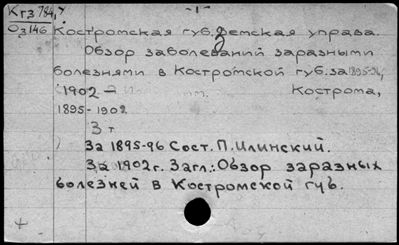 Кг3 784,7 -1-
Оз146 Костромская губ. Земская управа.
Обзор заболеваний заразными
болезнями в Костромской губ. за 1895-96,
1902 - Кострома,
1895-1902
3 т
За 1895-96 Сост. П. Илинский.
За 1902 г. Загл.: Обзор заразных
болезней в Костромской губ.